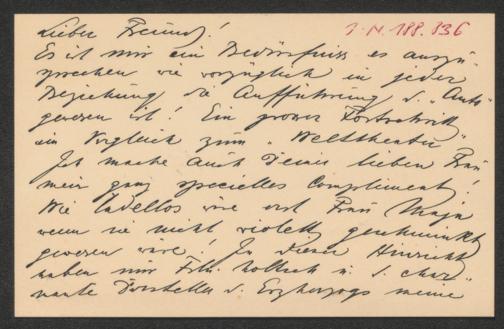 Lieber Freund!
I. N. 188.836
Es ist mir ein Bedürfniss es auszu-
sprechen wie vorzüglich in jeder
Beziehung die Aufführung d. „Anti-
gewesen ist! Ein grosser Fortschritt
im Vergleich zum „Welttheater"
Ich mache auch Deiner lieben Frau
mein ganz specielles Compliment!
Wie tadellos wäre erst Frau Maja
wenn sie nicht violett geschminkt
gewesen wäre! In dieser Hinsicht
haben mir Frln. u. d. char-
mante Darsteller d. Erzherzogs meine